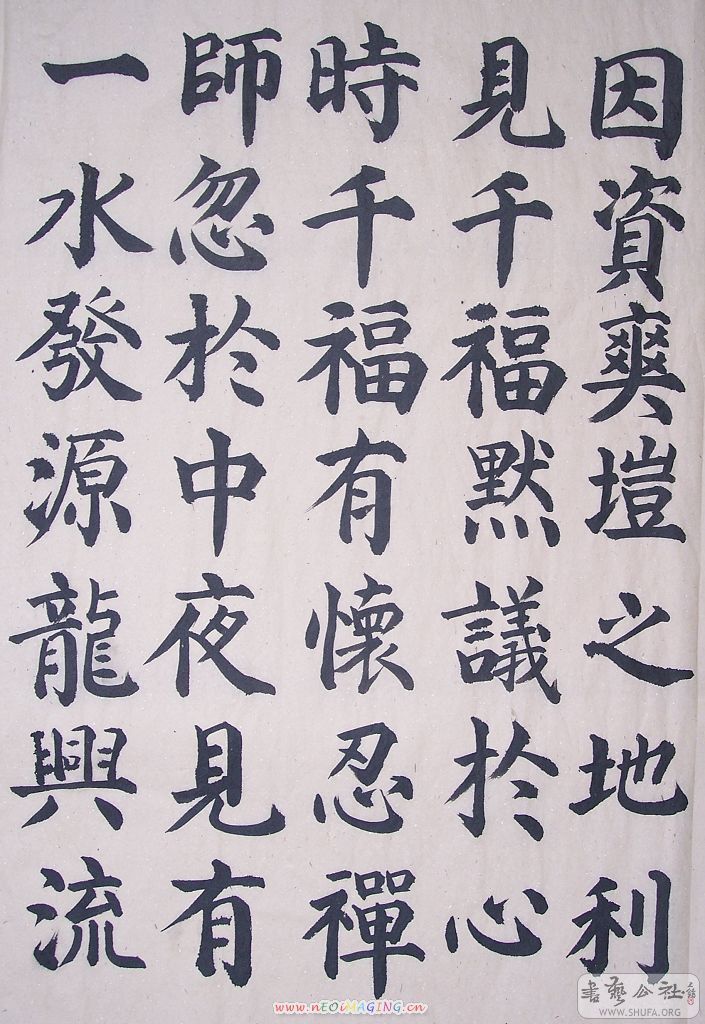 因資爽塏之地利
見千福默議於心
時千福有懷忍禪
師忽於中夜見有
一水發源龍興流
書藝公社
WWW.SHUFA.ORG
www.nEOiMAGING.cn